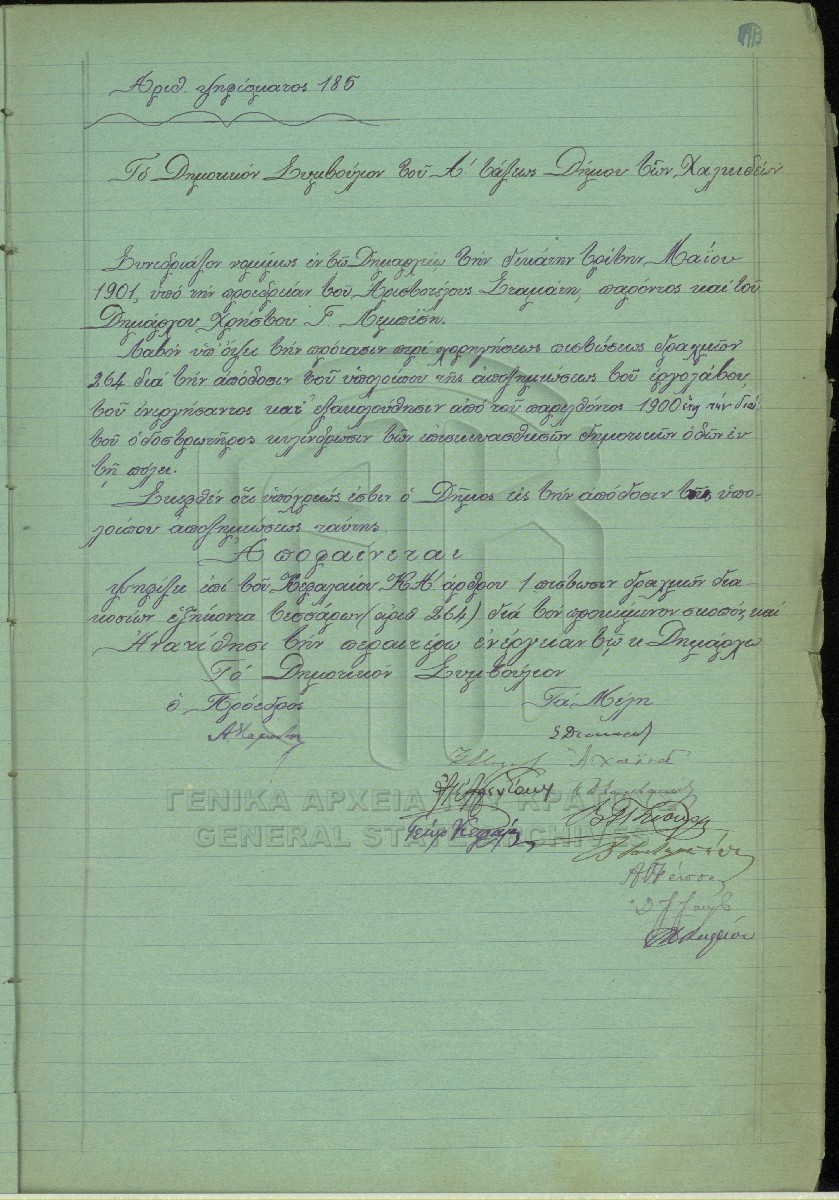 Ἀριθ. ψηφίσματος 185
Τό Δημοτικόν Συμβούλιον τοῦ Α' τάξεως Δήμου τῶν Χαλκιδέων
Συνεδριάσαν νομίμως ἐν τῷ Δημαρχείῳ τήν δεκάτην τρίτην Μαΐου
1901, ὑπό τήν προεδρείαν τοῦ Ἀριστοτέλους Σταμάτη, παρόντος καί τοῦ
Δημάρχου Χρήστου Γ. Λεμπέση.
Λαβόν ὑπ' ὄψει τήν πρότασιν περί χορηγήσεως πιστώσεως δραχμῶν
264 διά τήν ἀπόδοσιν τοῦ ὑπολοίπου τῆς ἀποζημιώσεως τοῦ ἐργολάβου
τοῦ ἐνεργήσαντος κατ' ἐξακολούθησιν ἀπό τοῦ παρελθόντος 1900 τήν διά
τοῦ ὁδοστρωτῆρος κυλίνδρωσιν τῶν ἐπισκευασθεισῶν δημοτικῶν ὁδῶν ἐν
τῇ πόλει.
Σκεφθέν ὅτι ὑπόχρεως ἐστιν ὁ Δῆμος εἰς τήν ἀπόδοσιν τῆς ὑπο-
λοίπου ἀποζημιώσεως ταύτης.
Ἀποφαίνεται
Ψηφίζει ἐπί τοῦ Κεφαλαίου ΚΑ' ἄρθρου 1 πίστωσιν δραχμῶν δια-
κοσίων ἑξήκοντα τεσσάρων (ἀριθ 264) διά τον προκείμενον σκοπόν, καί
Ἀνατίθησι τήν περαιτέρω ἐνέργειαν τῷ κ Δημάρχῳ
Τό Δημοτικόν Συμβούλιον
ὁ Πρόεδρος Τά Μέλη
Α. Σταμάτης
ΓΕΝΙΚΑ ΑΡΧΕΙΑ ΤΟΥ ΚΡΑΤΟΥΣ
GENERAL STATE ARCHIVES